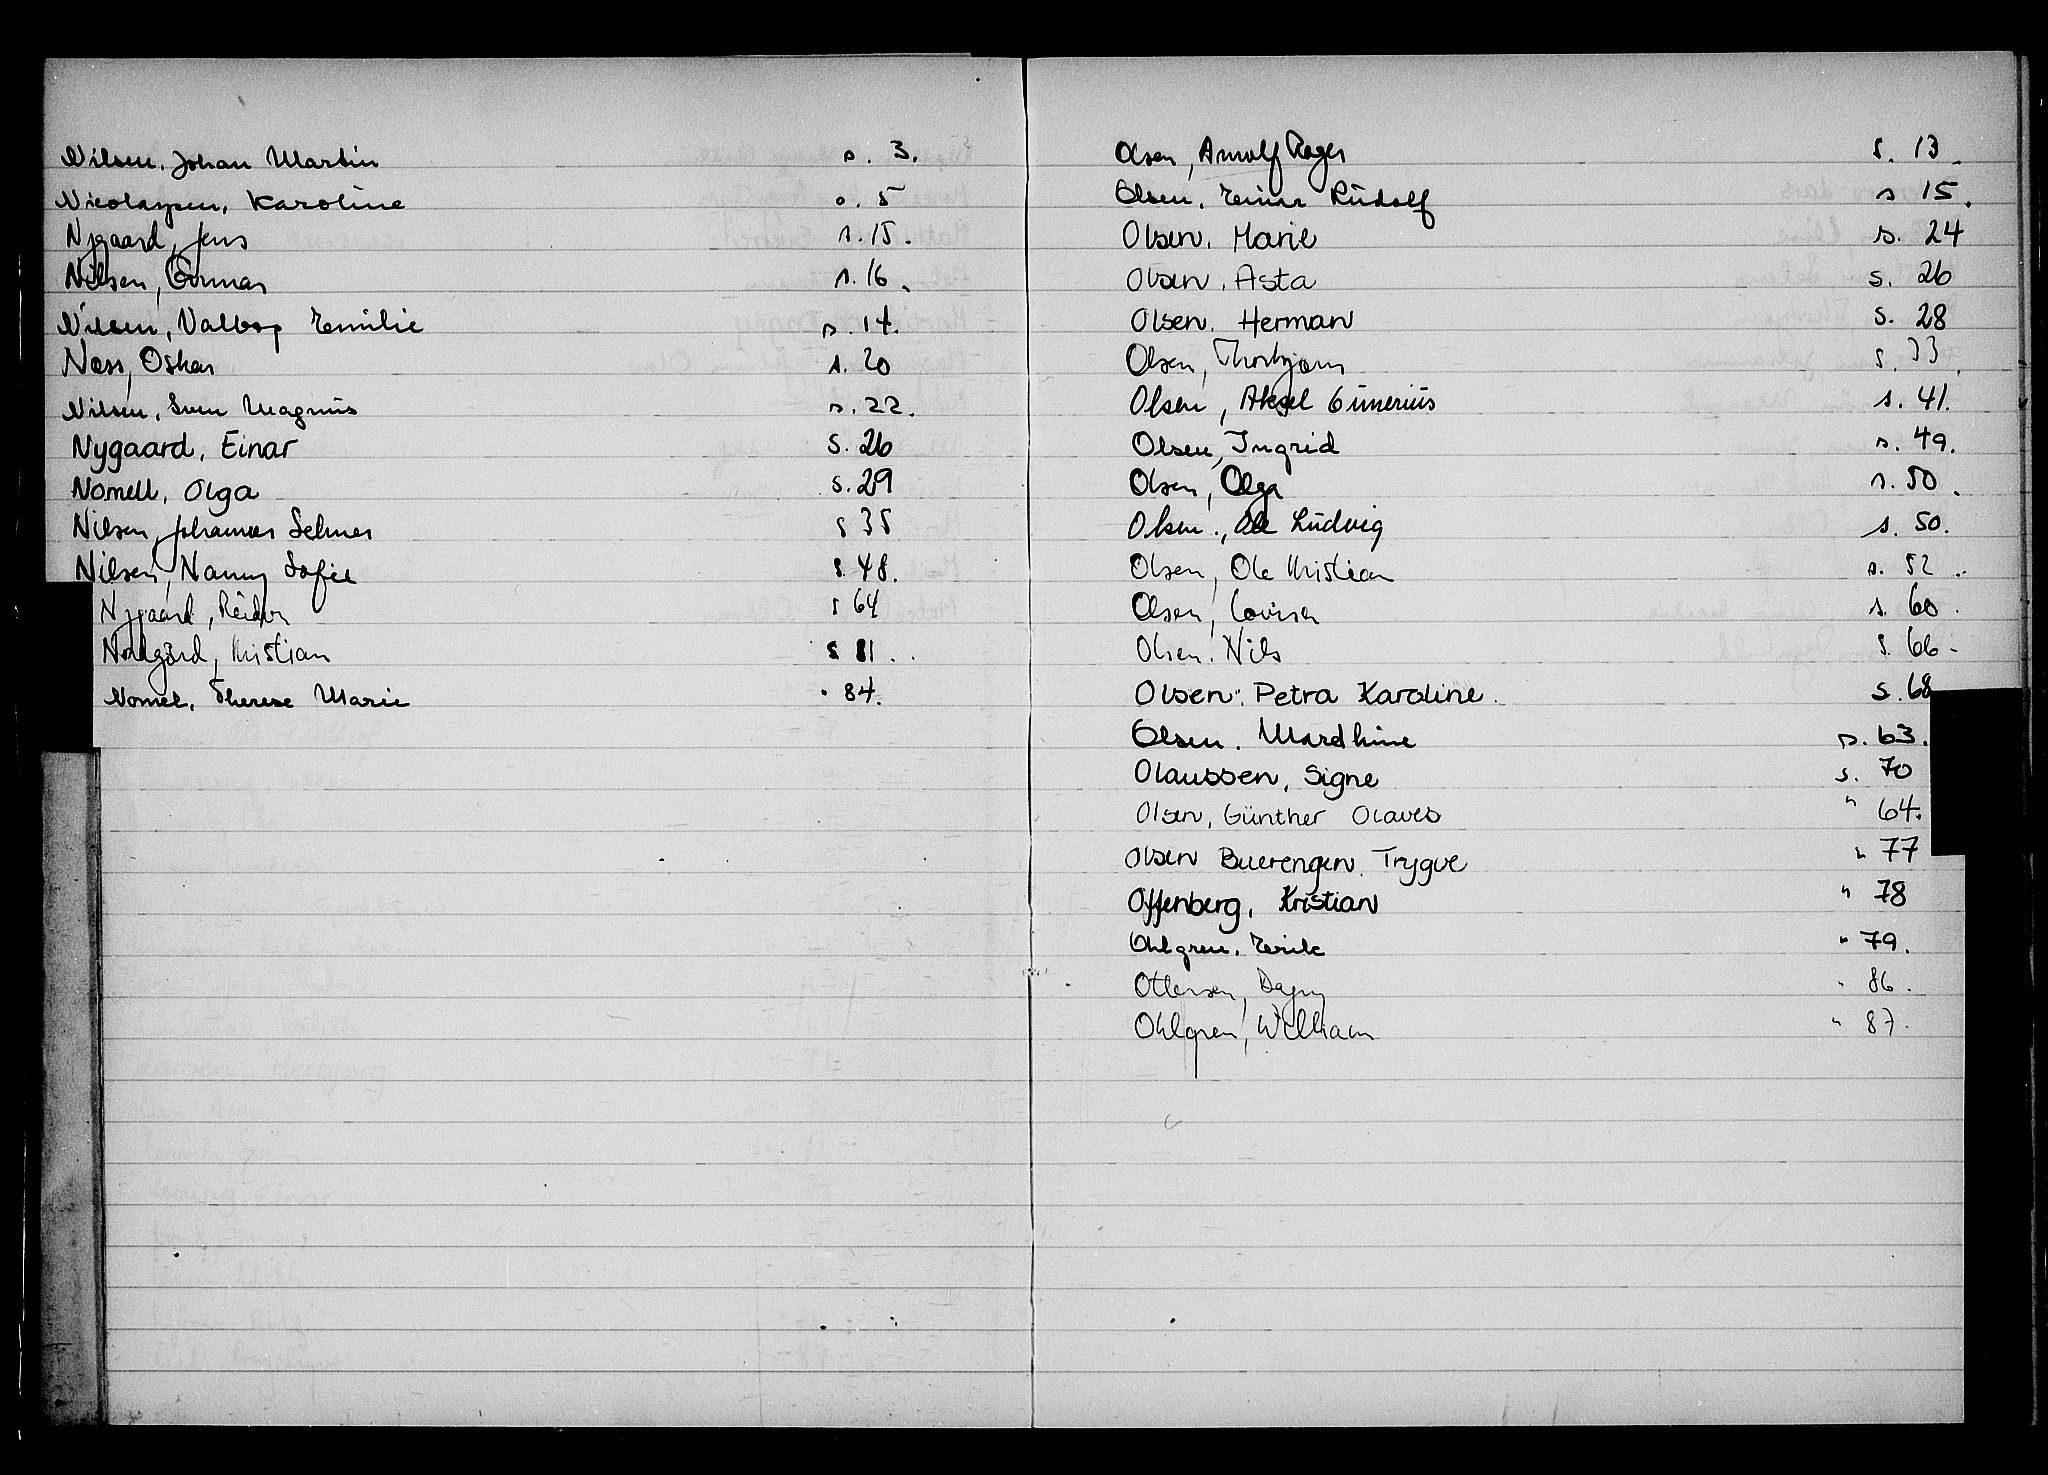 Nilsen, Johan Martin s. 3.
Nicolaysen, Karoline s. 5
Nygaard, Jens s. 15.
Nilsen, Gunnar s. 16.
Nilsen, Valborg Emilie s. 14.
Næss, Oskar s. 20
Nilsen, Sven Magnus s. 22.
Nygaard, Einar s. 26
Nomell, Olga s. 29
Nilsen, Johannes Selmer s 35
Nilsen, Nanny Sofie s. 48.
Nygaard, Reidar s 64
Nordgård, Kristian s 81.
Nomel, Therese Marie " 84.
Olsen, Arnulf Roger s. 13.
Olsen, Einar Rudolf s 15.
Olsen, Marie s. 24
Olsen, Asta s. 26
Olsen, Herman s. 28
Olsen, Thorbjørn s. 33.
Olsen, Aksel Gunerius s. 41.
Olsen, Ingrid s. 49.
Olsen, Olga s. 50.
Olsen, Ole Ludvig s. 50.
Olsen, Ole Kristian s. 52.
Olsen, Lovisa s. 60.
Olsen, Nils s. 66.
Olsen, Petra Karoline s. 68
Olsen, Mardhine s. 63.
Olaussen, Signe s. 70
Olsen, Günther Olaves " 64.
Olsen Buerengen, Trygve " 77
Offenberg, Kristian " 78
Ohlgren, Erik " 79.
Ottersen, Dagny " 86.
Ohlgren, William " 87.